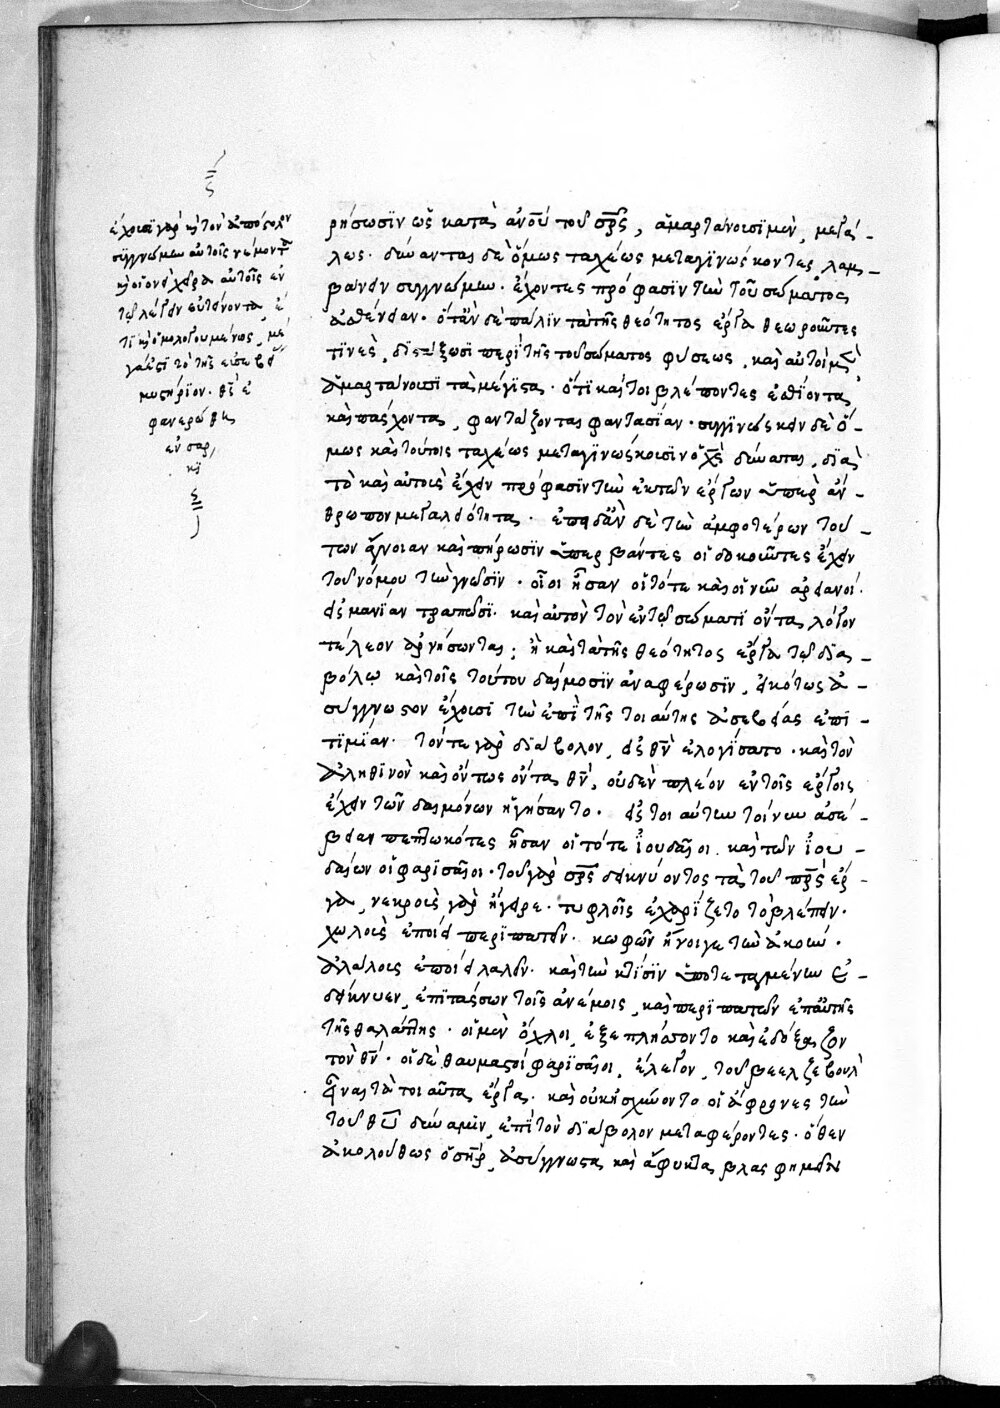 ἔχουσι γὰρ καὶ τὸν ἀπόστολον
συγγνώμην αὐτοῖς νέμοντα
καὶ οἱονεὶ χεῖρα αὐτοῖς ἐν
τῷ λέγειν ἐκτείνοντα, ὅ
τι καὶ ὁμολογουμένως μέ
γα ἐστὶ τὸ τῆς εὐσεβείας
μυστήριον. θς ἐ
φανερώθη
ἐν σαρ
κί
ρήσωσιν ὡς κατὰ ἀνου τοῦ σρς, ἁμαρτάνουσι μὲν μεγά-
λως. δύνανται δὲ ὅμως ταχέως μεταγινώσκοντες λαμ-
βάνειν συγγνώμην. ἔχοντες πρόφασιν τὴν τοῦ σώματος
ἀσθένειαν. ὅταν δὲ πάλιν τὰ τῆς θεότητος ἔργα θεωροῦντές
τινες, διστάζωσι περὶ τῆς τοῦ σώματος φύσεως, καὶ αὐτοὶ μὲν
ἁμαρτάνουσι τὰ μέγιστα. ὅτι καίτοι βλέποντες ἐσθίοντα
καὶ πάσχοντα, φαντάζονται φαντασίαν. συγγινώσκειν δὲ ὅ-
μως καὶ τούτοις ταχέως μεταγινώσκουσιν ὁ χς δύναται, διὰ
τὸ καὶ αὐτοὺς ἔχειν πρόφασιν τὴν ἐκ τῶν ἔργων ὑπὲρ ἄν-
θρωπον μεγαλειότητα. ἐπειδὰν δὲ τὴν ἀμφοτέρων τού-
των ἄγνοιαν καὶ πήρωσιν ὑπερβάντες οἱ δοκοῦντες ἔχειν
τοῦ νόμου τὴν γνῶσιν. οἷοι ἦσαν οἱ τότε καὶ οἱ νῦν ἀρειανοὶ.
εἰς μανίαν τραπῶσι. καὶ αὐτὸν τὸν ἐν τῷ σώματι ὄντα λόγον
τέλεον ἀρνήσωνται, ἢ καὶ τὰ τῆς θεότητος ἔργα τῷ δια-
βόλῳ καὶ τοῖς τούτου δαίμοσιν ἀναφέρωσιν, εἰκότως ἀ-
σύγγνωστον ἔχουσι τὴν ἐπὶ τῆς τοιαύτης ἀσεβείας ἐπι-
τιμίαν. τόν τε γὰρ διάβολον, εἰς θν ἐλογίσαντο. καὶ τὸν
ἀληθινὸν καὶ ὄντως ὄντα θν, οὐδὲν πλέον ἐν τοῖς ἔργοις
ἔχειν τῶν δαιμόνων ἡγήσαντο. εἰς τοιαύτην τοίνυν ἀσέ-
βειαν πεπτωκότες ἦσαν οἱ τότε ἰουδαῖοι, καὶ τῶν ἰου-
δαίων οἱ φαρισαῖοι. τοῦ γὰρ σρς δεικνύοντος τὰ τοῦ πρς ἔρ-
γα, νεκροὺς γὰρ ἤγειρε. τυφλοῖς ἐχαρίζετο τὸ βλέπειν.
χωλοὺς ἐποίει περιπατεῖν. κωφῶν ἤνοιγε τὴν ἀκοήν.
ἀλάλους ἐποίει λαλεῖν. καὶ τὴν κτίσιν ὑποτεταγμένην ἐ-
δείκνυεν, ἐπιτάσσων τοῖς ἀνέμοις, καὶ περιπατῶν ἐπ' αὐτῆς
τῆς θαλάττης. οἱ μὲν ὄχλοι, ἐξεπλήσσοντο καὶ ἐδόξαζον
τὸν θν. οἱ δὲ θαυμαστοὶ φαρισαῖοι, ἔλεγον, τοῦ βεελζεβοὺλ
εἶναι τὰ τοιαῦτα ἔργα. καὶ οὐκ ᾐσχύνοντο οἱ ἄφρονες τὴν
τοῦ θυ δύναμιν, ἐπὶ τὸν διάβολον μεταφέροντες. ὅθεν
ἀκολούθως ὁ σηρ, ἀσύγγνωστα καὶ ἄφυκτα βλασφημεῖν